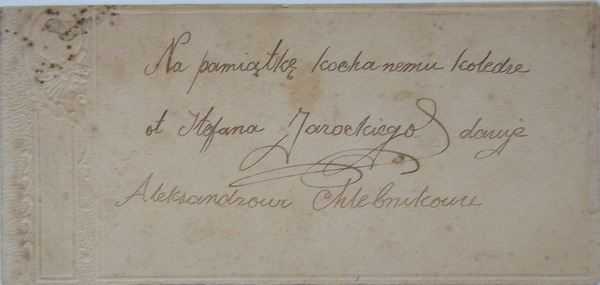 Na pamiątkę kochanemu koledze
ot Stefana Jarockiego daruję
Aleksandrowi Chlebnikowu